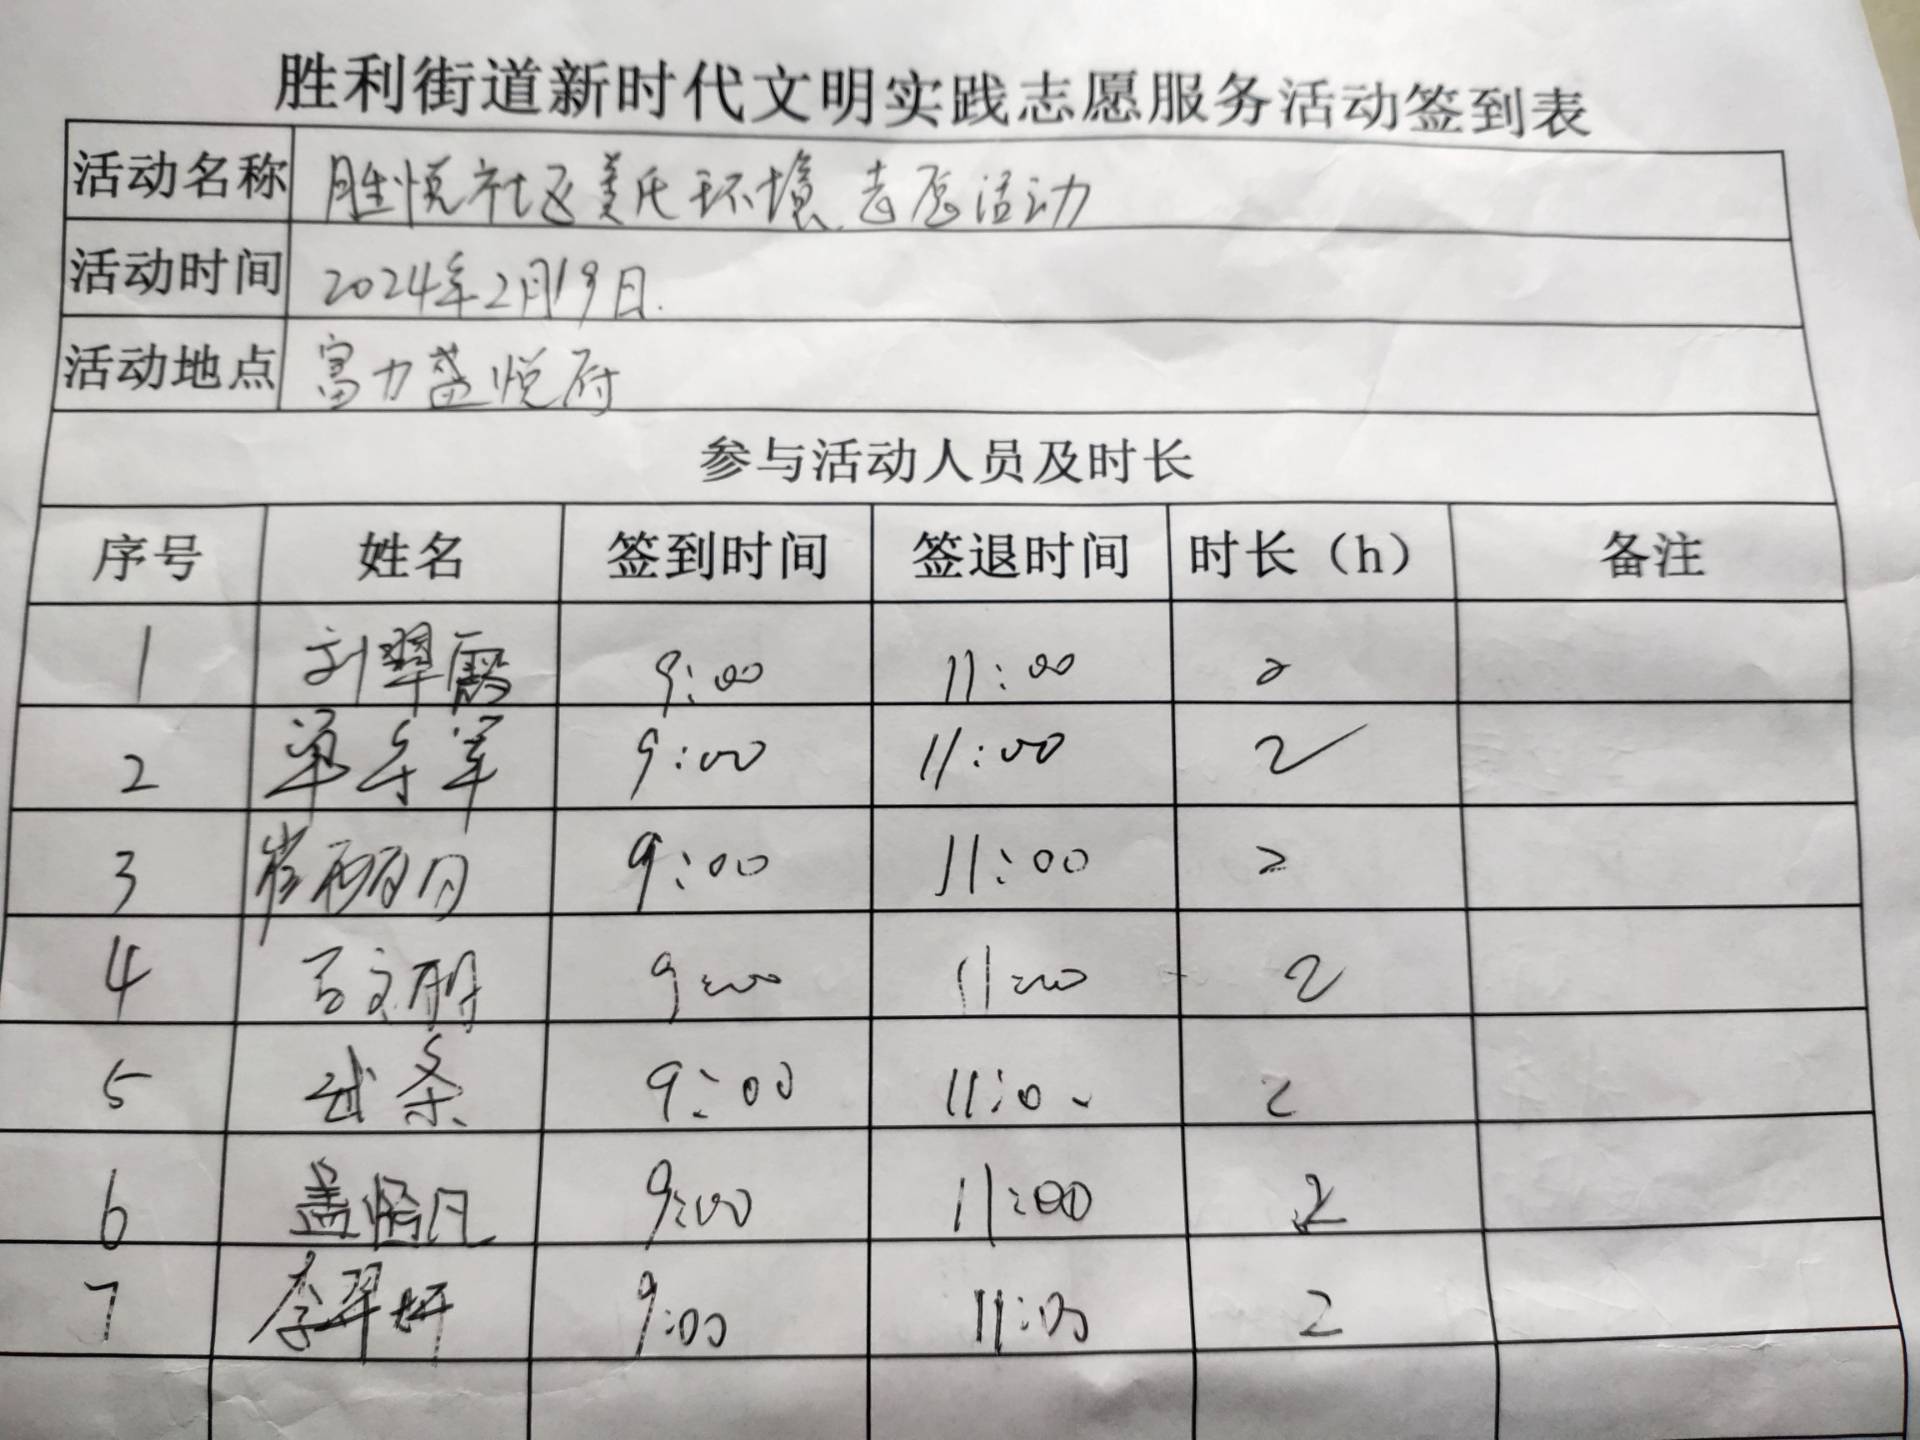 胜利街道新时代文明实践志愿服务活动签到表
活动名称 胜悦社区美化环境志愿活动
活动时间 2024年2月19日.
活动地点 富力盛悦府
参与活动人员及时长
序号 姓名 签到时间 签退时间 时长（h） 备注
1 刘翠霞 9:00 11:00 2
2 9:00 11:00 2
3 崔丽丹 9:00 11:00 2
4 9:00 11:00 2
5 9:00 11:00 2
6 盖怡凡 9:00 11:00 2
7 李翠妍 9:00 11:00 2